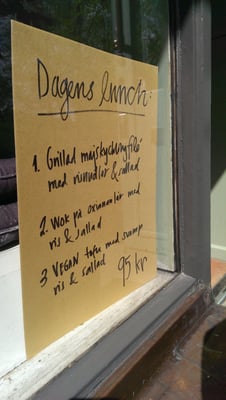 Dagens lunch:
1. Grillad majskycklingfilé
med risnudlar & sallad
2. Wok på oxinnanlår med
ris & sallad
3 VEGAN tofu med svamp
ris & sallad
95 kr